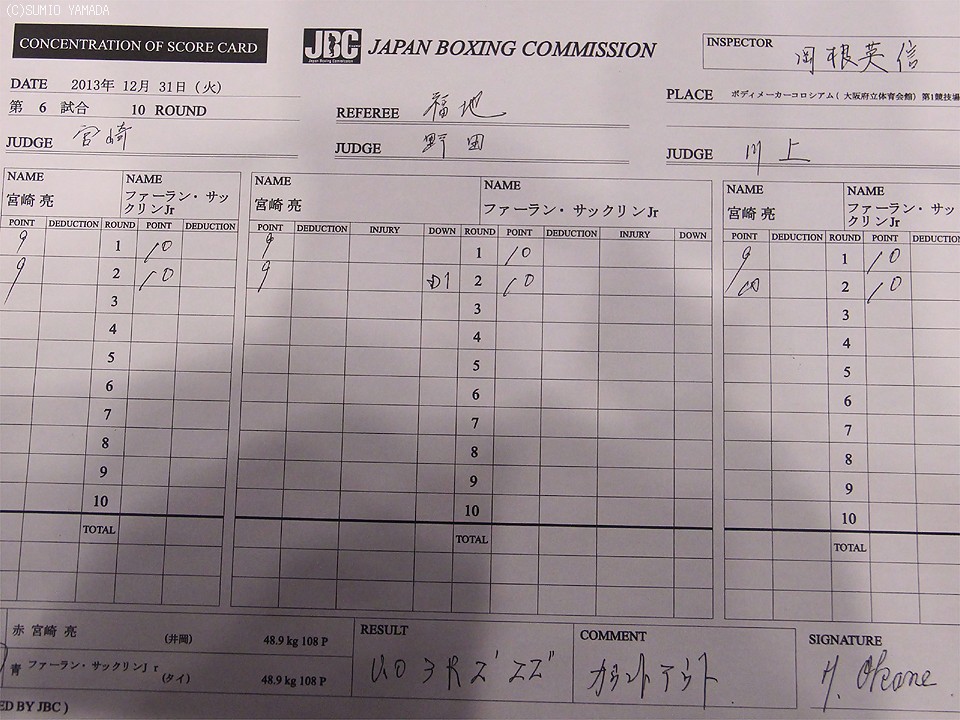 (C)SUMIO YAMADA
CONCENTRATION OF SCORE CARD
JBC
Japan Boxing Commission
JAPAN BOXING COMMISSION
INSPECTOR 岡根英信
DATE 2013年 12月 31日 (火)
PLACE ボディメーカーコロシアム( 大阪府立体育会館) 第1競技場
第 6 試合 10 ROUND
REFEREE 福地
JUDGE 宮崎
JUDGE 野田
JUDGE 川上
NAME NAME
宮崎 亮 ファーラン・サックリンJr
POINT DEDUCTION ROUND POINT DEDUCTION
9 1 10
9 2 10
3
4
5
6
7
8
9
10
TOTAL
NAME NAME
宮崎 亮 ファーラン・サックリンJr
POINT DEDUCTION INJURY DOWN ROUND POINT DEDUCTION INJURY DOWN
9 1 10
9 D1 2 10
3
4
5
6
7
8
9
10
TOTAL
NAME NAME
宮崎 亮 ファーラン・サックリンJr
POINT DEDUCTION ROUND POINT DEDUCTION
9 1 10
10 2 10
3
4
5
6
7
8
9
10
TOTAL
赤 宮崎 亮 (井岡) 48.9 kg 108 P
青 ファーラン・サックリンJr (タイ) 48.9 kg 108 P
RESULT
3R
COMMENT
カウントアウト
SIGNATURE
H. Okane
ED BY JBC )